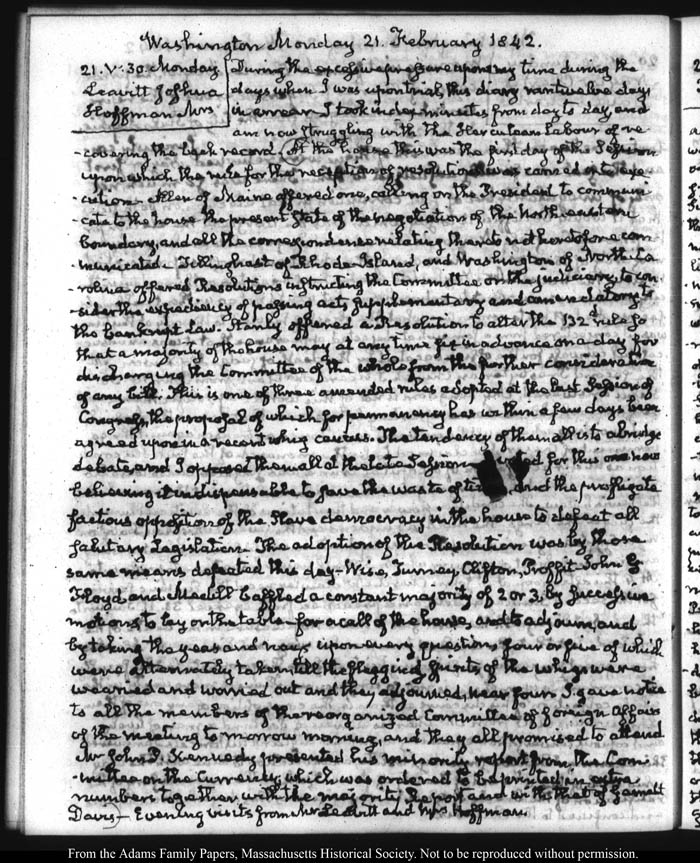 Washington Monday 21. February 1842.
21. V:30. Monday
Leavitt Joshua
Hoffman Mrs
During the excessive pressure upon my time during the
days when I was upon trial, this diary ran twelve days
in arrear. I took index minutes from day to day, and
am now struggling with the Herculean labour of re
-covering the back record. At the house this was the first day of the Session
upon which the rule for the reception of resolutions was carried into exe
-cution. Allen of Maine offered one, calling on the President to communi
-cate to the house the present State of the negotiation of the North-eastern
boundary, and all the correspondence relating thereto not heretofore com
-municated. Tillinghast of Rhode-Island, and Washington of North-Ca
-rolina offered Resolutions instructing the Committee on the judiciary, to con
-sider the expediency of passing acts supplementary and amendatory, to
the bankrupt Law. Stanly offered a Resolution to alter the 132d rule so
that a majority of the house may at any time fix in advance on a day for
discharging the Committee of the whole from the further consideration
of any bill. This is one of three amended rules adopted at the last Session of
Congress, the proposal of which for permanency has within a few days been
agreed upon in a recent whig caucus. The tendency of them all is to abridge
debate, and I opposed them all at the late Session for this one now
believing it indispensable to save the waste of and the profligate
factious opposition of the Slave democracy in the house to defeat all
salutary legislation. The adoption of the Resolution was by those
same means defeated this day. Wise, Turney, Clifton, Proffit John G
Floyd and Medill baffled a constant majority of 2 or 3, by successive
motions, to lay on the table—for a call of the house, and to adjourn, and
by taking the yeas and nays upon every question, four or five of which
were alternately taken, till the flagging spirits of the whigs were
wearied and worried out and they adjourned, near four. I gave notice
to all the members of the reorganized Committee of foreign Affairs
of the meeting to morrow morning, and they all promised to attend
Mr John P. Kennedy presented his minority report from the Com
-mittee on the Currency, which was ordered to be printed in extra
numbers together with the majority Report and with that of Garrett
Davis— Evening visits from Mr Leavitt and Mrs Hoffman.
From the Adams Family Papers, Massachusetts Historical Society. Not to be reproduced without permission.